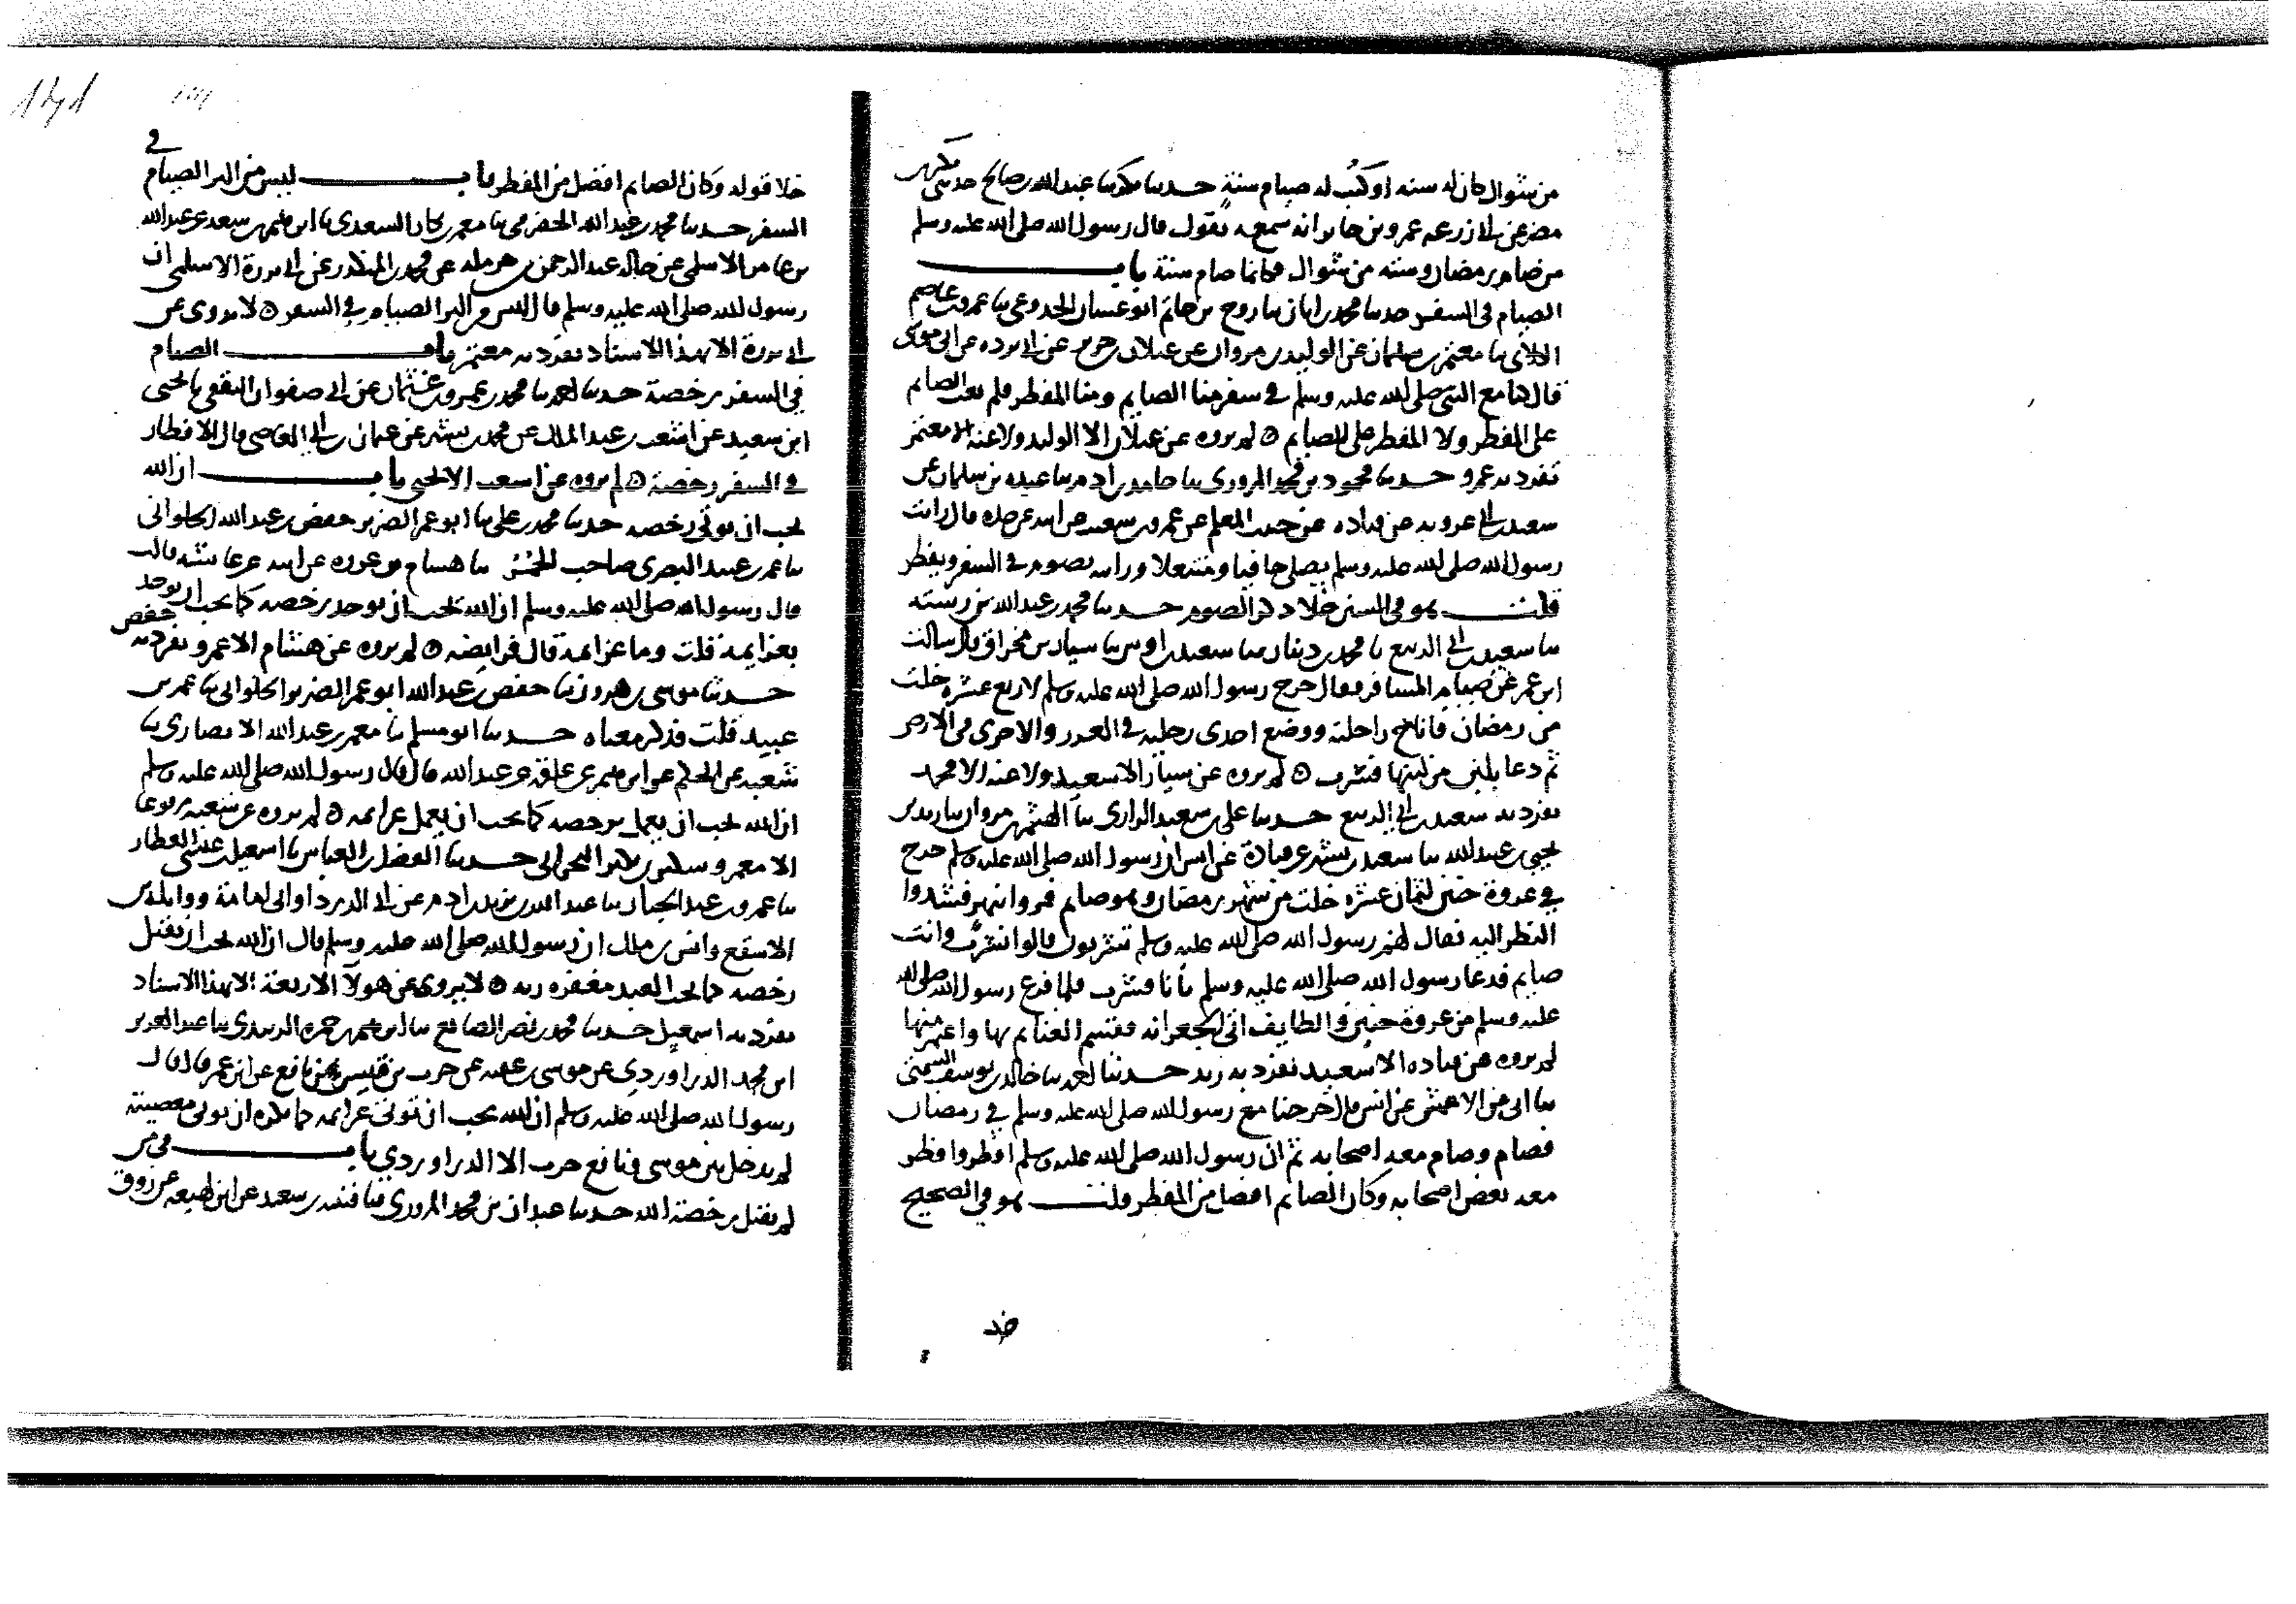 من شوال كان له سنه او كتب له صيام سنة حدثنا بكر ثنا عبد الله بن صالح حدثني بكر بن
مضر عن ابي زرعه عمرو بن جابر انه سمعه يقول قال رسول الله صلى الله عليه وسلم
من صام رمضان وسته من شوال فكانما صام سنة باب
الصيام في السفر حدثنا محمد بن ابان ثنا روح بن حاتم ابو غسان الجذوعي ثنا عمرو بن عاصم
الكلابي ثنا معتمر بن سليمان عن الوليد بن مروان عن غيلان بن جرير عن ابي برده عن ابي موسى
قال كنا مع النبي صلى الله عليه وسلم في سفر منا الصايم ومنا المفطر فلم يعب الصايم
على المفطر ولا المفطر على الصايم لم يروه عن غيلان الا الوليد ولا عنه الا معتمر
تفرد به عمرو حدثنا محمود بن محمد المروزي ثنا حامد بن ادم ثنا عبده بن سليمان عن
سعيد بن ابي عروبه عن قتاده عن حسين المعلم عن عمرو بن شعيب عن ابيه عن جده قال رايت
رسول الله صلى الله عليه وسلم يصلي حافيا ومنتعلا ورايته يصوم في السفر ويفطر
قلت هو في السنن خلا ذكر الصوم حدثنا محمد بن عبد الله بن رسته
ثنا سعيد بن ابي الربيع ثنا محمد بن دينار ثنا سعيد بن اوس ثنا سيار بن مخراق قال سالت
ابن عمر عن صيام المسافر فقال خرج رسول الله صلى الله عليه وسلم لاربع عشره خلت
من رمضان فاناخ راحلته ووضع احدى رجليه في الغرز والاخرى في الارض
ثم دعا بلبن من لبنها فشرب لم يروه عن سيار الا سعيد ولا عنه الا محمد
تفرد به سعيد بن ابي الربيع حدثنا علي بن سعيد الرازي ثنا الهيثم بن مروان ثنا زيد بن
يحيى بن عبيد الله ثنا سعيد بن بشير عن قتادة عن انس ان رسول الله صلى الله عليه وسلم خرج
في غزوة حنين لثمان عشره خلت من شهر رمضان وهو صايم فمروا بنهر فشددوا
النظر اليه فقال لهم رسول الله صلى الله عليه وسلم تشربون قالوا نشرب وانت
صايم فدعا رسول الله صلى الله عليه وسلم باناء فشرب فلما فرغ رسول الله صلى الله
عليه وسلم من غزوة حنين والطايف اتى الجعرانه فقسم الغنايم بها واعتمر منها
لم يروه عن قتاده الا سعيد تفرد به زيد حدثنا احمد ثنا خالد بن يوسف السمتي
ثنا ابي عن الاعمش عن انس قال خرجنا مع رسول الله صلى الله عليه وسلم في رمضان
فصام وصام معه اصحابه ثم ان رسول الله صلى الله عليه وسلم افطر وافطر
معه بعض اصحابه وكان الصايم افضل من المفطر قلت هو في الصحيح
خلا قوله وكان الصايم افضل من المفطر باب ليس من البر الصيام في
السفر حدثنا محمد بن عبد الله الحضرمي ثنا معمر بن بكار السعدي ثنا ابراهيم بن سعد عن عبد الله
بن عامر الاسلمي عن خاله عبد الرحمن بن حرمله عن محمد بن المنكدر عن ابي برزة الاسلمي ان
رسول الله صلى الله عليه وسلم قال ليس من البر الصيام في السفر لا يروى عن
ابي برزة الا بهذا الاسناد تفرد به معمر باب الصيام
في السفر رخصة حدثنا احمد ثنا محمد بن عمرو بن عثمان بن ابي صفوان الثقفي ثنا يحيى
ابن سعيد عن اشعث بن عبد الملك عن محمد بن سيرين عن عثمان بن ابي العاصي قال الافطار
في السفر رخصة لم يروه عن اشعث الا يحيى باب ان الله
يحب ان تؤتى رخصه حدثنا محمد بن علي ثنا ابو عمر الضرير حفص بن عبد الله الحلواني
ثنا عمر بن عبيد البصري صاحب الخمر ثنا هشام بن عروه عن ابيه عن عائشه قالت
قال رسول الله صلى الله عليه وسلم ان الله يحب ان يوخذ برخصه كما يحب ان يوخذ
بعزايمه قلت وما عزايمه قال فرايضه لم يروه عن هشام الا عمر تفرد به حفص
حدثنا موسى بن هرون ثنا حفص بن عبد الله ابو عمر الضرير الحلواني ثنا عمر بن
عبيد قلت فذكر معناه حدثنا ابو مسلم ثنا معمر بن عبد الله الانصاري ثنا
شعبه عن الحكم عن ابراهيم عن علقمه عن عبد الله قال قال رسول الله صلى الله عليه وسلم
ان الله يحب ان يعمل برخصه كما يحب ان يعمل عزايمه لم يروه عن شعبه مرفوعا
الا معمر وبكر البحراني حدثنا الفضل بن العباس ثنا اسمعيل بن عيسى العطار
ثنا عمرو بن عبد الجبار ثنا عبد الله بن يزيد بن ادم عن ابي الدرداء وابي امامة وواثلة بن
الاسقع وانس بن ملك ان رسول الله صلى الله عليه وسلم قال ان الله يحب ان تقبل
رخصه كما يحب العبد مغفره ربه لا يروى عن هولاء الاربعة الا بهذا الاسناد
تفرد به اسمعيل حدثنا محمد بن نصر الصائغ ثنا ابراهيم بن حمزه الزبيري ثنا عبد العزيز
ابن محمد الدراوردي عن موسى بن عقبه عن حرب بن قيس عن نافع عن ابن عمر قال قال
رسول الله صلى الله عليه وسلم ان الله يحب ان تؤتى عزايمه كما يكره ان تؤتى معصيته
لم يدخل بين موسى ونافع حرب الا الدراوردي باب في من
لم يقبل رخصة الله حدثنا عبدان بن محمد المروزي ثنا قتيبه بن سعيد عن ابن لهيعه عن رزيق